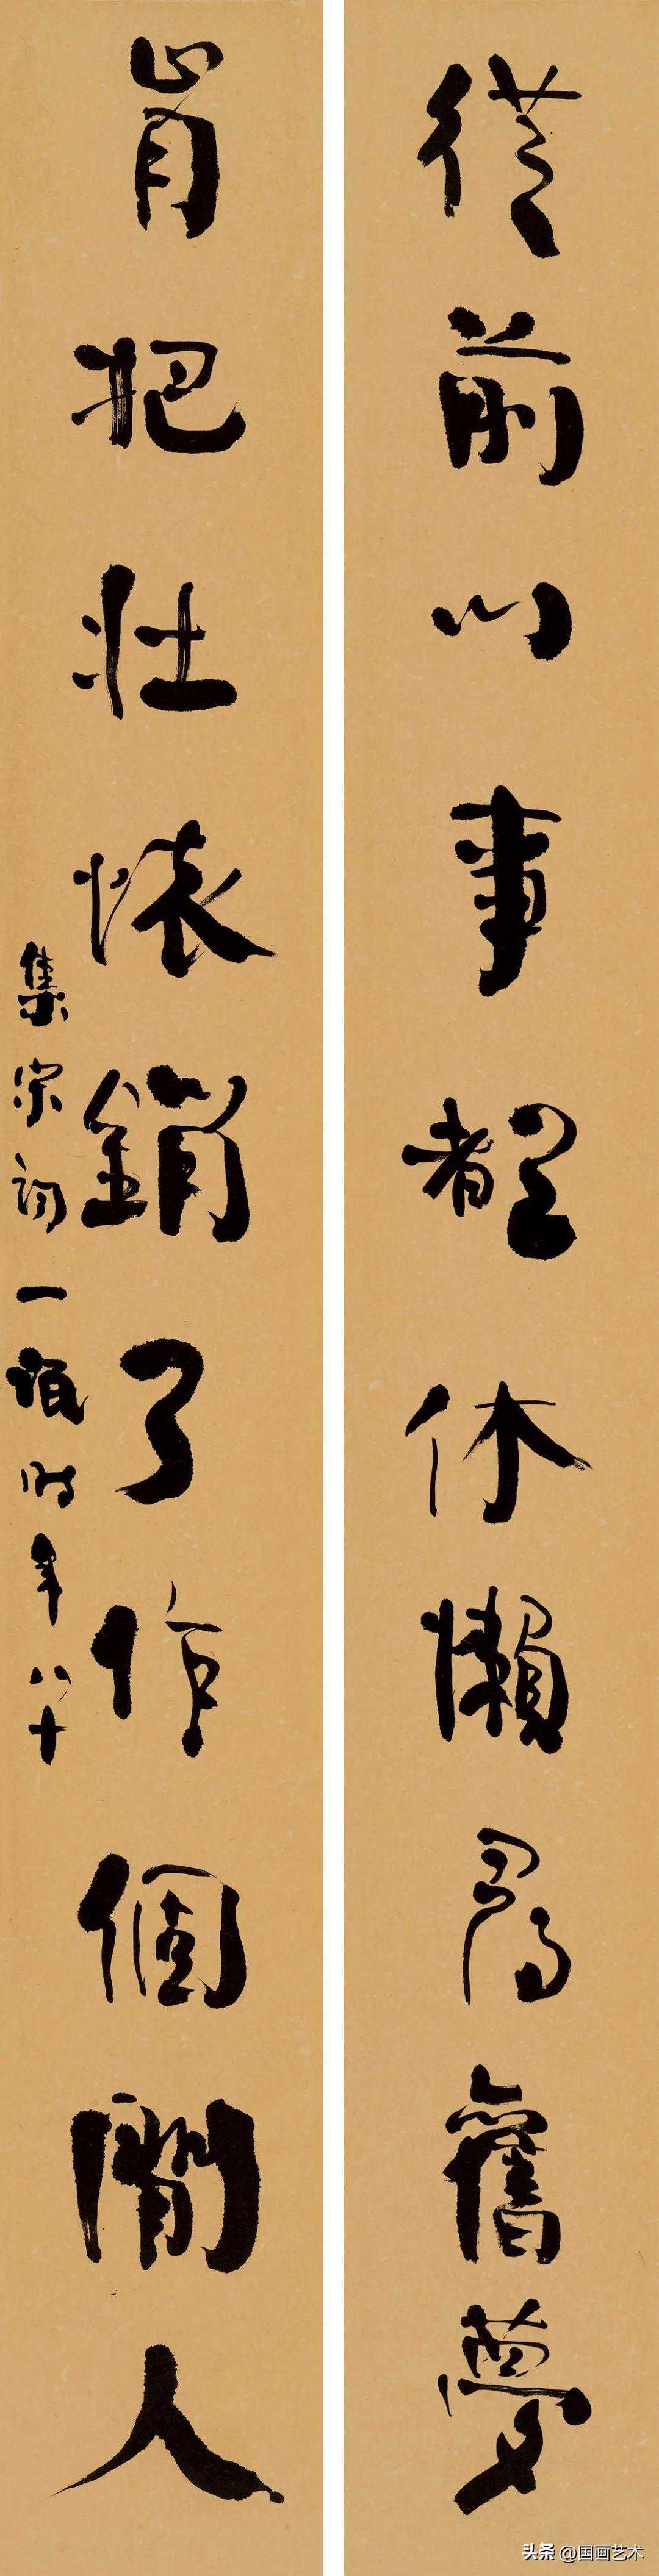 從前心事都休懶尋舊夢
肯把壮懷銷了作個閒人
集宋詞一氓時年八十
头条 @国画艺术